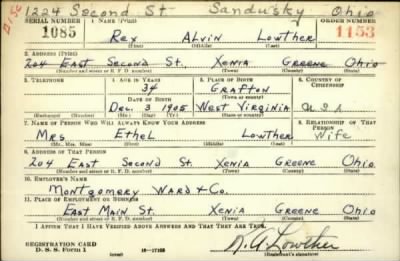 1224 Second St. Sandusky Ohio
SERIAL NUMBER 1. NAME (Print) ORDER NUMBER
1085 Rex Alvin Lowther 1153
(First) (Middle) (Last)
2. ADDRESS (Print)
204 East Second St. Xenia Greene Ohio
(Number and street or R. F. D. number) (Town) (County) (State)
3. TELEPHONE 4. AGE IN YEARS 5. PLACE OF BIRTH 6. COUNTRY OF CITIZENSHIP
34 Grafton
DATE OF BIRTH (Town or county)
Dec. 3 1905 West Virginia U.S.A
(Mo.) (Day) (Yr.) (State or country)
7. NAME OF PERSON WHO WILL ALWAYS KNOW YOUR ADDRESS 8. RELATIONSHIP OF THAT PERSON
Mrs Ethel Lowther Wife
(Mr., Mrs., Miss) (First) (Middle) (Last)
9. ADDRESS OF THAT PERSON
204 East Second St. Xenia Greene Ohio
(Number and street or R. F. D. number) (Town) (County) (State)
10. EMPLOYER'S NAME
Montgomery Ward & Co.
11. PLACE OF EMPLOYMENT OR BUSINESS
East Main St. Xenia Greene Ohio
(Number and street or R. F. D. number) (Town) (County) (State)
I AFFIRM THAT I HAVE VERIFIED ABOVE ANSWERS AND THAT THEY ARE TRUE.
REGISTRATION CARD
D. S. S. Form 1 R. A. Lowther
(Registrant's signature)